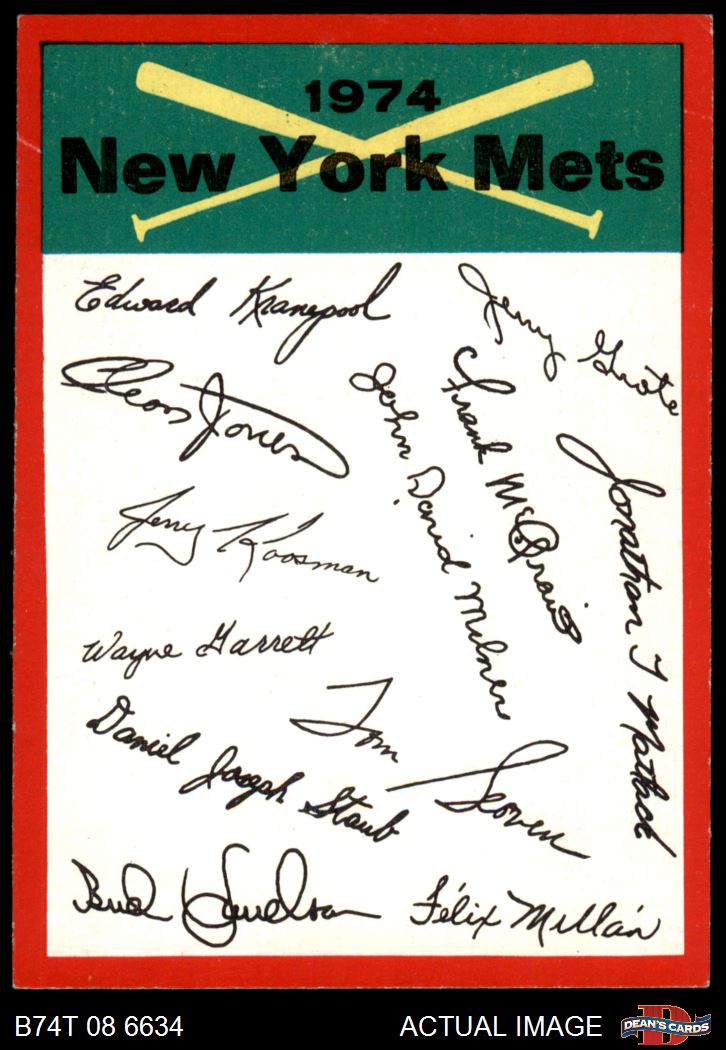 1974
New York Mets
Edward Kranepool
Jerry Grote
Cleon Jones
John David Milner
Frank McGraw
Jonathan T Matlack
Jerry Koosman
Wayne Garrett
Tom Seaver
Daniel Joseph Staub
Bud Harrelson
Félix Millán
B74T 08 6634
ACTUAL IMAGE
D
DEAN'S CARDS